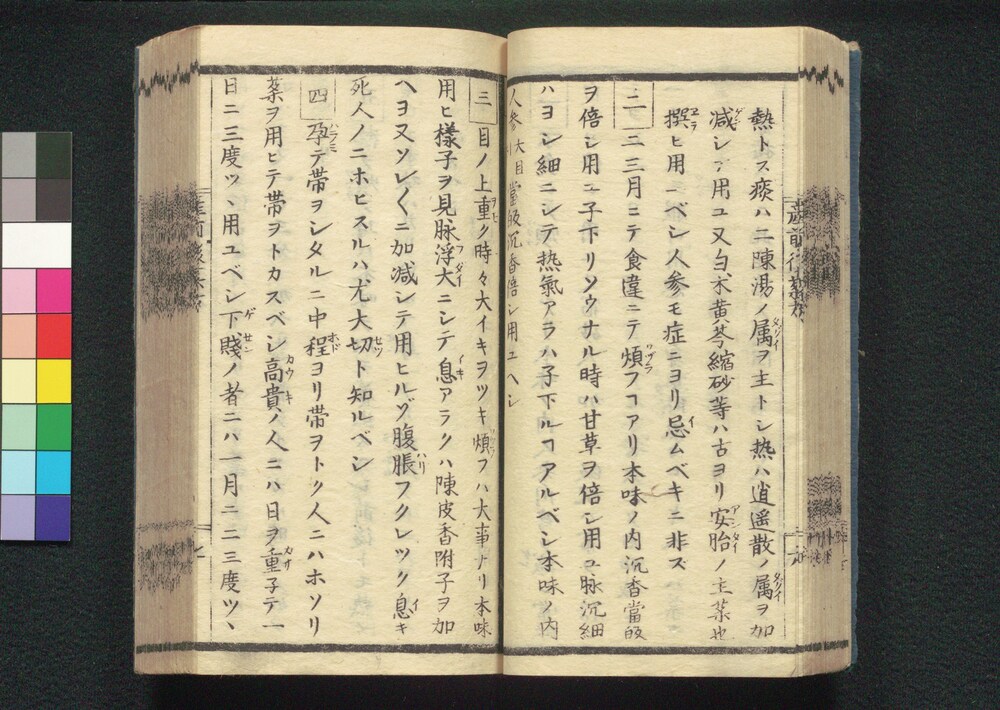 熱トス痰ハ二陳湯ノ属ヲ主トシ熱ハ逍遥散ノ属ヲ加
減シテ用ユ又白朮黄芩縮砂等ハ古ヨリ安胎ノ主薬也
撰ヒ用ヘシ人参モ症ニヨリ忌ムベキニ非ズ
二 二三月ニテ食違ニテ煩フヿアリ本味ノ内沉香當皈
ヲ倍シ用ユ子下リソウナル時ハ甘草ヲ倍シ用ユ脉沉細
ハヨシ細ニシテ熱氣アラハ子下ルヿアルベシ本味ノ内
人参 大目 當皈沉香倍シ用ユヘシ
三 目ノ上重ク時々大イキヲツキ煩フハ大事ナリ本味
用ヒ様子ヲ見脉浮大ニシテ息アラクハ陳皮香附子ヲ加
ヘヨ又ソレ〱ニ加减シテ用ヒルヅ腹脹フクレツク息キ
死人ノニホヒスルハ尤大切ト知ルベシ
四 孕テ帯ヲシタルニ中程ヨリ帯ヲトク人ニハホソリ
薬ヲ用ヒテ帯ヲトカスベシ高貴ノ人ニハ日ヲ重子テ一
日ニ三度ツヽ用ユベシ下賤ノ者ニハ一月ニ二三度ツヽ